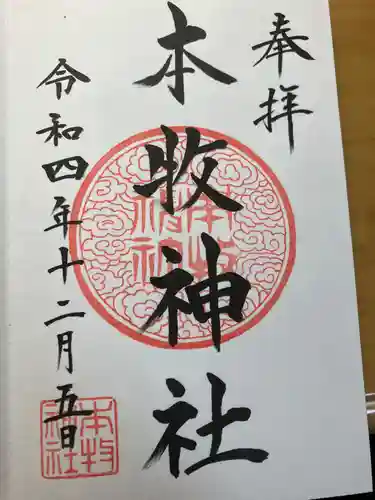 奉拝
本牧神社
令和四年十二月五日
本牧神社
本牧神社